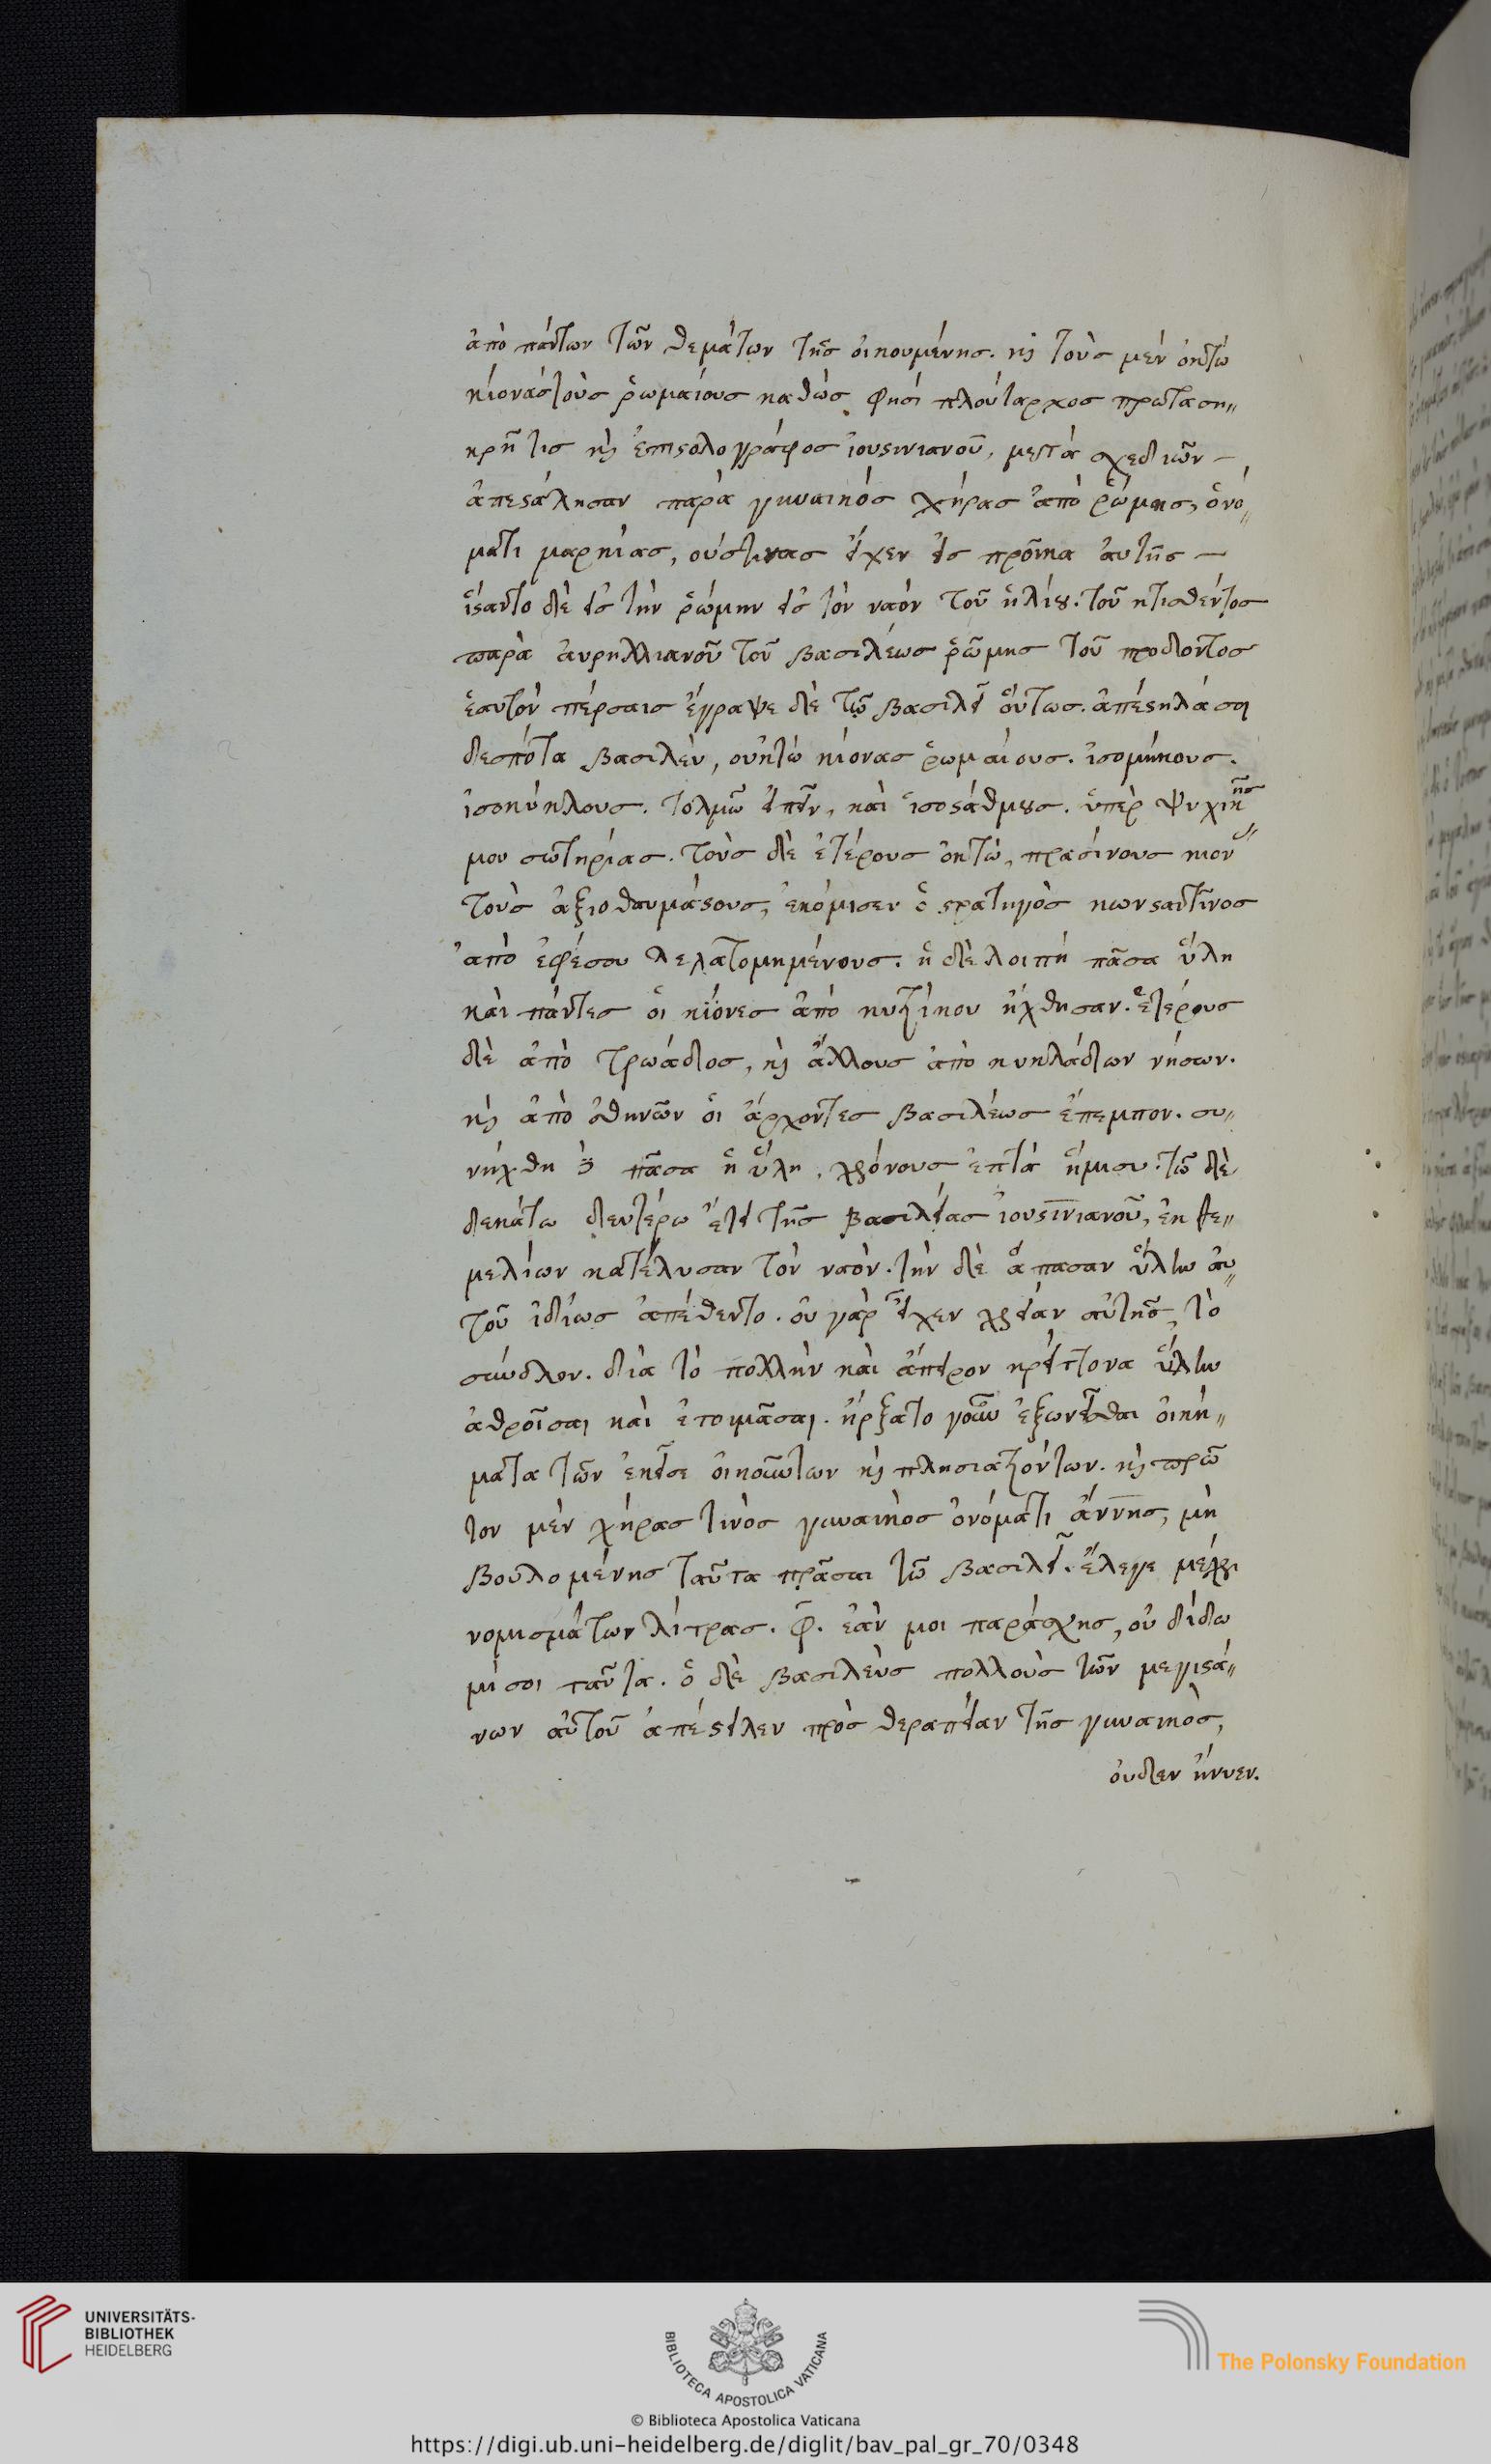 ἀπὸ πάντων τῶν θεμάτων τῆς οἰκουμένης. κ̀ τοὺς μὲν ὀκτὼ
κίονας τοὺς ῥωμαίους καθώς φησι πλούταρχος πρωτασηκ〃
κρῆτις κ̀ ἐπιϛολογράφος ἰουϛινιανοῦ, μετὰ σχεδιῶν –
ἀπεϛάλησαν παρὰ γυναικὸς χήρας ἀπὸ ῥώμης, ὀνό〃
ματι μαρκίας, οὕστινας εἶχεν εἰς προῖκα αὐτῆς –
ἵϛαντο δὲ εἰς τὴν ῥώμην εἰς τὸν ναὸν τοῦ ἡλίου. τοῦ κτισθέντος
παρὰ αὐρηλλιανοῦ τοῦ βασιλέως ῥώμης τοῦ προδόντος
ἑαυτὸν πέρσαις ἔγραψε δὲ τῷ βασιλεῖ οὕτως. ἀπέϛηλά σοι
δεσπότα βασιλεῦ, οὐκτὼ κίονας ῥωμαίους. ἰσομήκους.
ἰσοκύκλους. τολμῶ εἰπεῖν, καὶ ἰσοϛάθμους. ὑπὲρ ψυχικῆς
μου σωτηρίας. τοὺς δὲ ἑτέρους ὀκτὼ, πρασίνους κιον〃
τοὺς ἀξιοθαυμάϛους, ἐκόμισεν ὁ ϛρατηγὸς κωνϛαντῖνος
ἀπὸ ἐφέσου λελατομημένους. ἡ δὲ λοιπὴ πᾶσα ὕλη
καὶ πάντες οἱ κίονες ἀπὸ κυζίκου ἤχθησαν. ἑτέρους
δὲ ἀπὸ τρωάδος, κ̀ ἄλλους ἀπὸ κυκλάδων νήσων.
κ̀ ἀπὸ ἀθηνῶν οἱ ἄρχοντες βασιλέως ἔπεμπον. συ〃
νήχθη πᾶσα ἡ ὕλη, χρόνους ἑπτὰ ἥμισυ. τῶ δὲ
δεκάτω δευτέρω ἔτει τῆς βασιλείας ἰουϛινιανοῦ, ἐκ θε〃
μελίων κατέλυσαν τὸν ναὸν. τὴν δὲ ἅπασαν ὕλην αὐ〃
τοῦ ἰδίως ἀπέθεντο. οὐ γὰρ εἶχεν χρείαν αὐτῆς, τὸ
σύνολον. διὰ τὸ πολλὴν καὶ ἄπειρον κρείττονα ὕλην
ἀθροῖσαι καὶ ἑτοιμᾶσαι. ἤρξατο γοῦν ἐξωνεῖσθαι οἰκή〃
ματα τῶν ἐκεῖσε οἰκούντων κ̀ πλησιαζόντων. κ̀ πρῶ
τον μὲν χήρας τινὸς γυναικὸς ὀνόματι ἄννης, μὴ
βουλομένης ταῦτα πρᾶσαι τῶ βασιλεῖ. ἔλεγε μέχρι
νομισμάτων λίτρας. φ̅. ἐάν μοι παράσχης, οὐ δίδω
μι σοι ταῦτα. ὁ δὲ βασιλεὺς πολλοὺς τῶν μεγιϛά〃
νων αὐτοῦ ἀπέϛειλεν πρὸς θεραπείαν τῆς γυναικὸς,
οὐδὲν ἤνυεν.
UNIVERSITÄTS-
BIBLIOTHEK
HEIDELBERG
BIBLIOTECA APOSTOLICA VATICANA
The Polonsky Foundation
© Biblioteca Apostolica Vaticana
https://digi.ub.uni-heidelberg.de/diglit/bav_pal_gr_70/0348